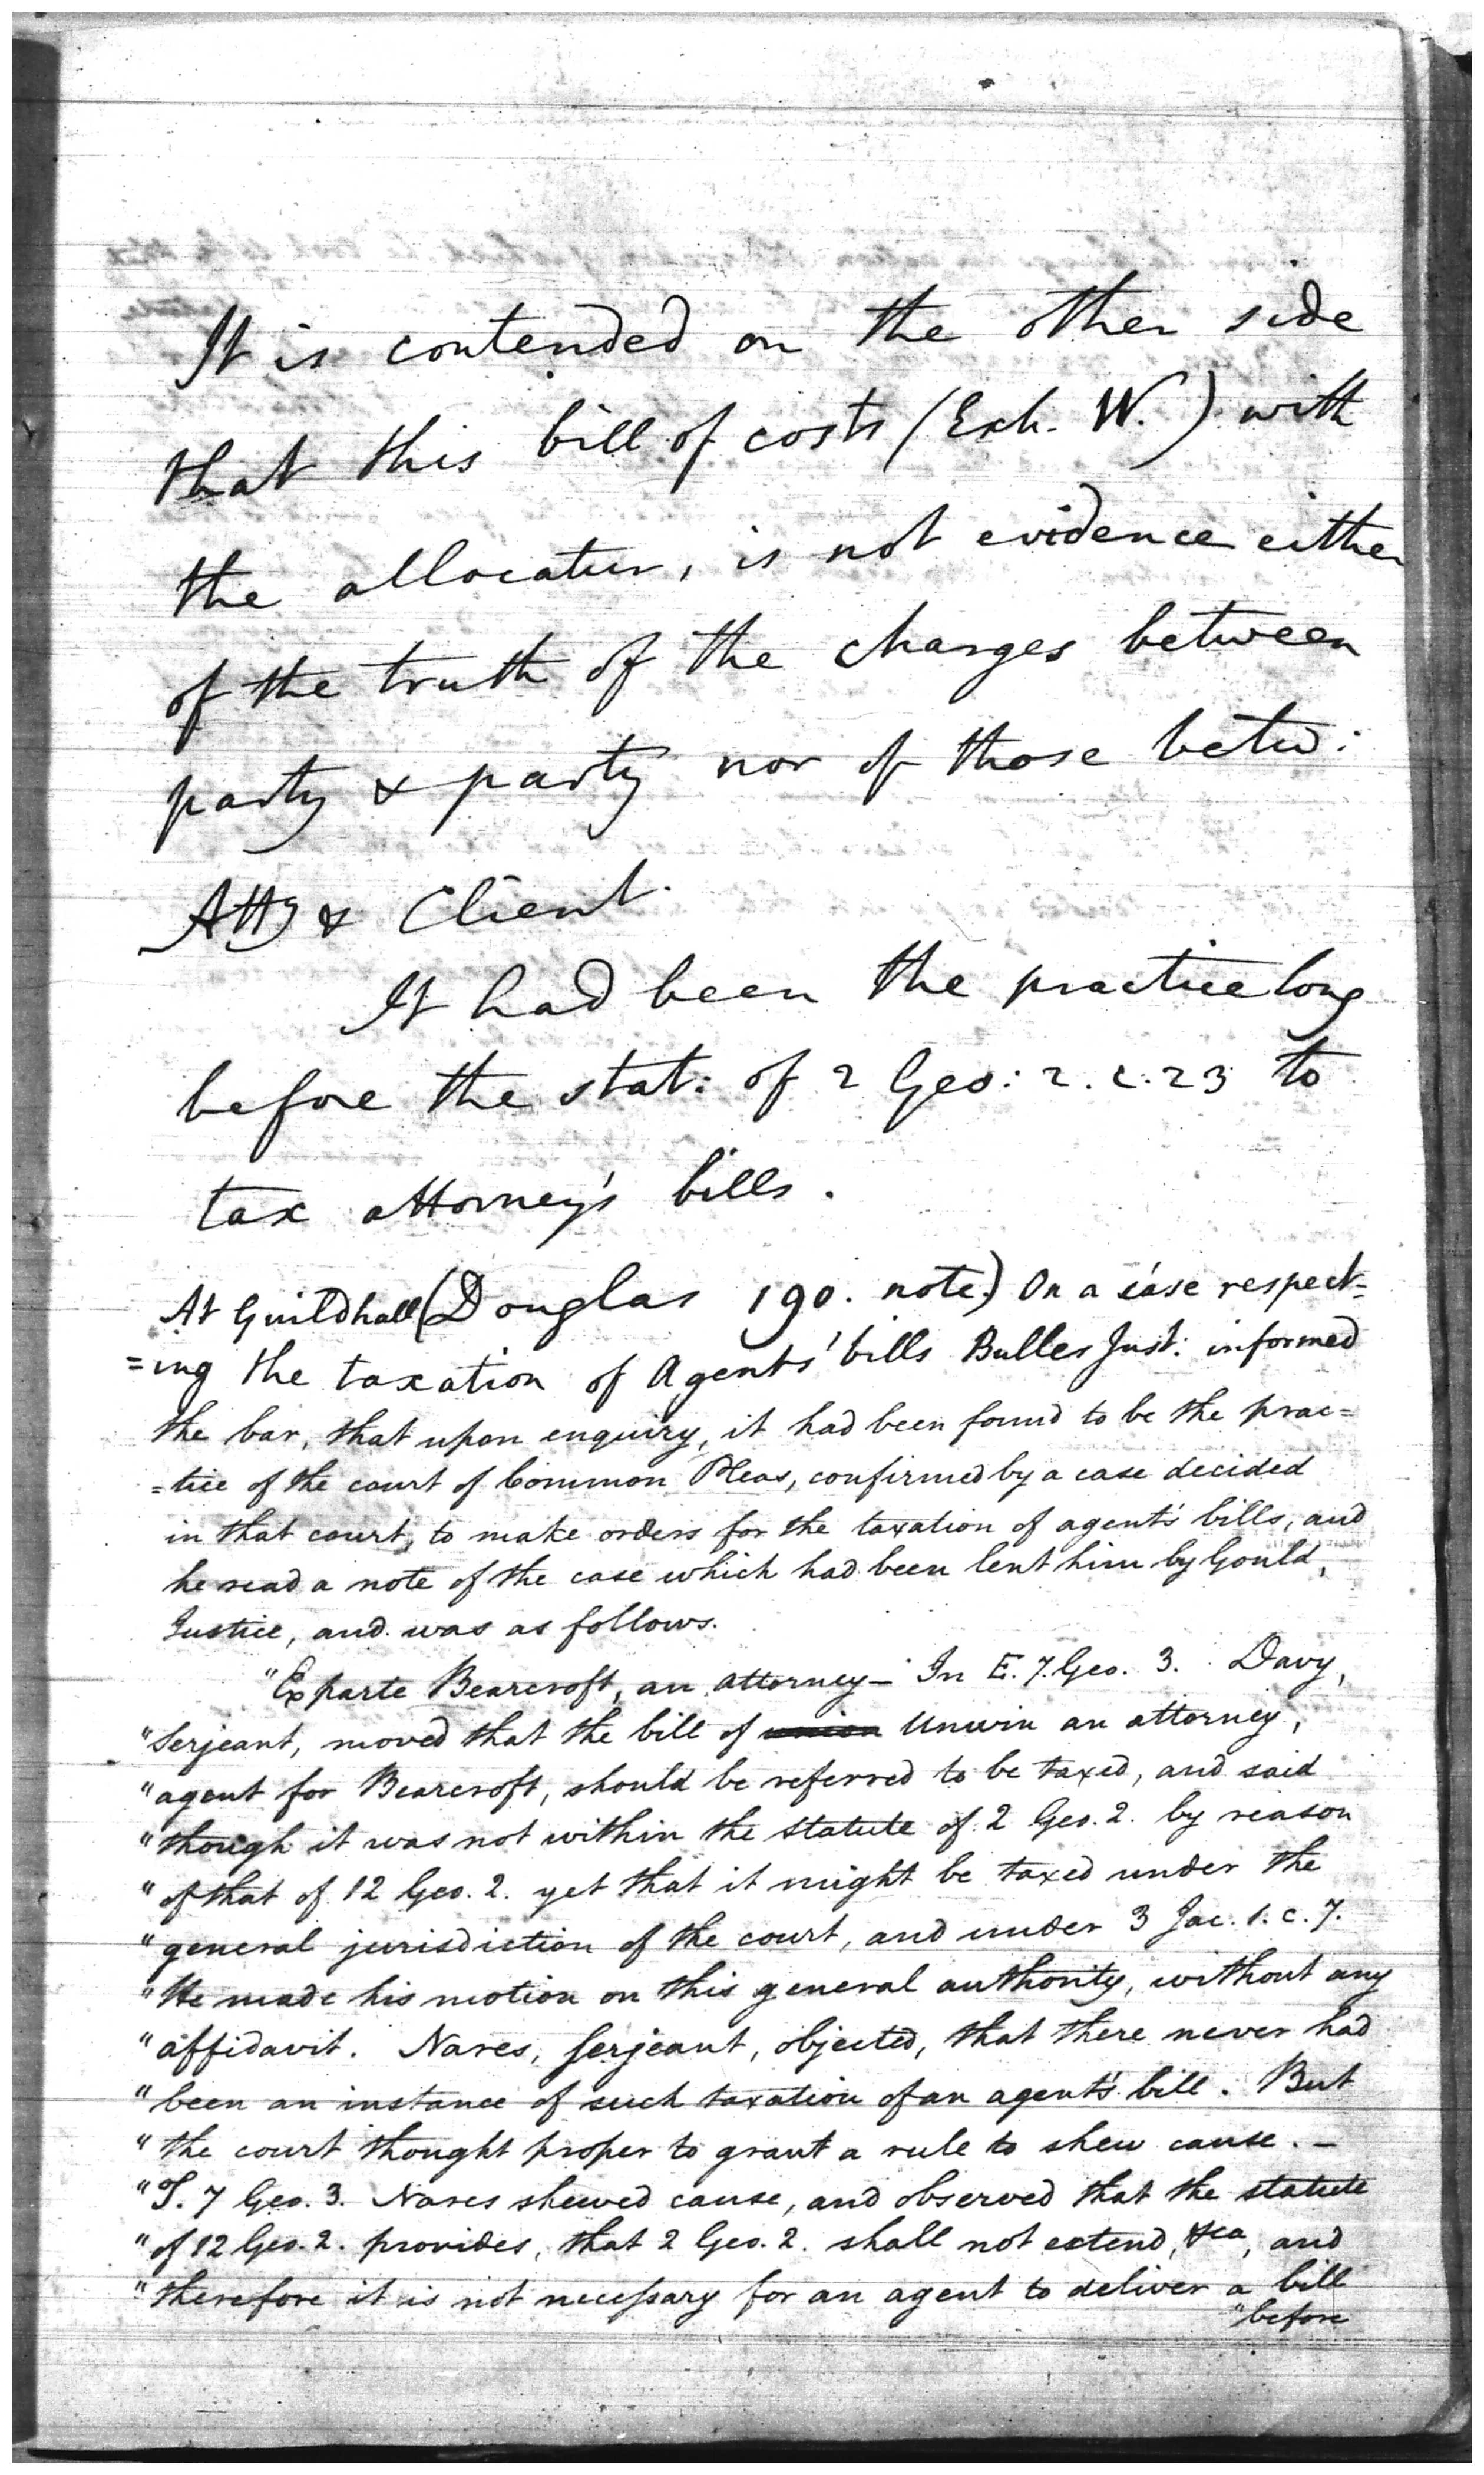 It is contended on the other side
that this bill of costs (Exh. W.) with
the allocatur, is not evidence either
of the truth of the charges between
party & party nor of those betw:
Atty & Client.
It had been the practice long
before the stat: of 2 Geo: 2. c. 23 to
tax attorney's bills.
At Guildhall (Douglas 190. note.) On a case respect=
=ing the taxation of Agents' bills Buller Just: informed
the bar, that upon enquiry, it had been found to be the prac=
=tice of the court of Common Pleas, confirmed by a case decided
in that court, to make orders for the taxation of agent's bills, and
he read a note of the case which had been lent him by Gould,
Justice, and was as follows.
"Exparte Bearcroft, an attorney— In E. 7. Geo. 3. Davy,
"Serjeant, moved that the bill of Unwin an attorney,
"agent for Bearcroft, should be referred to be taxed, and said
"though it was not within the statute of 2 Geo. 2. by reason
"of that of 12 Geo. 2. yet that it might be taxed under the
"general jurisdiction of the court, and under 3 Jac. 1. c. 7.
"He made his motion on this general authority, without any
"affidavit. Nares, Serjeant, objected, that there never had
"been an instance of such taxation of an agent's bill. But
"the court thought proper to grant a rule to shew cause. —
"T. 7 Geo. 3. Nares shewed cause, and observed that the statute
"of 12 Geo. 2. provides, that 2 Geo. 2. shall not extend, &ca, and
"therefore it is not necessary for an agent to deliver a bill
"before